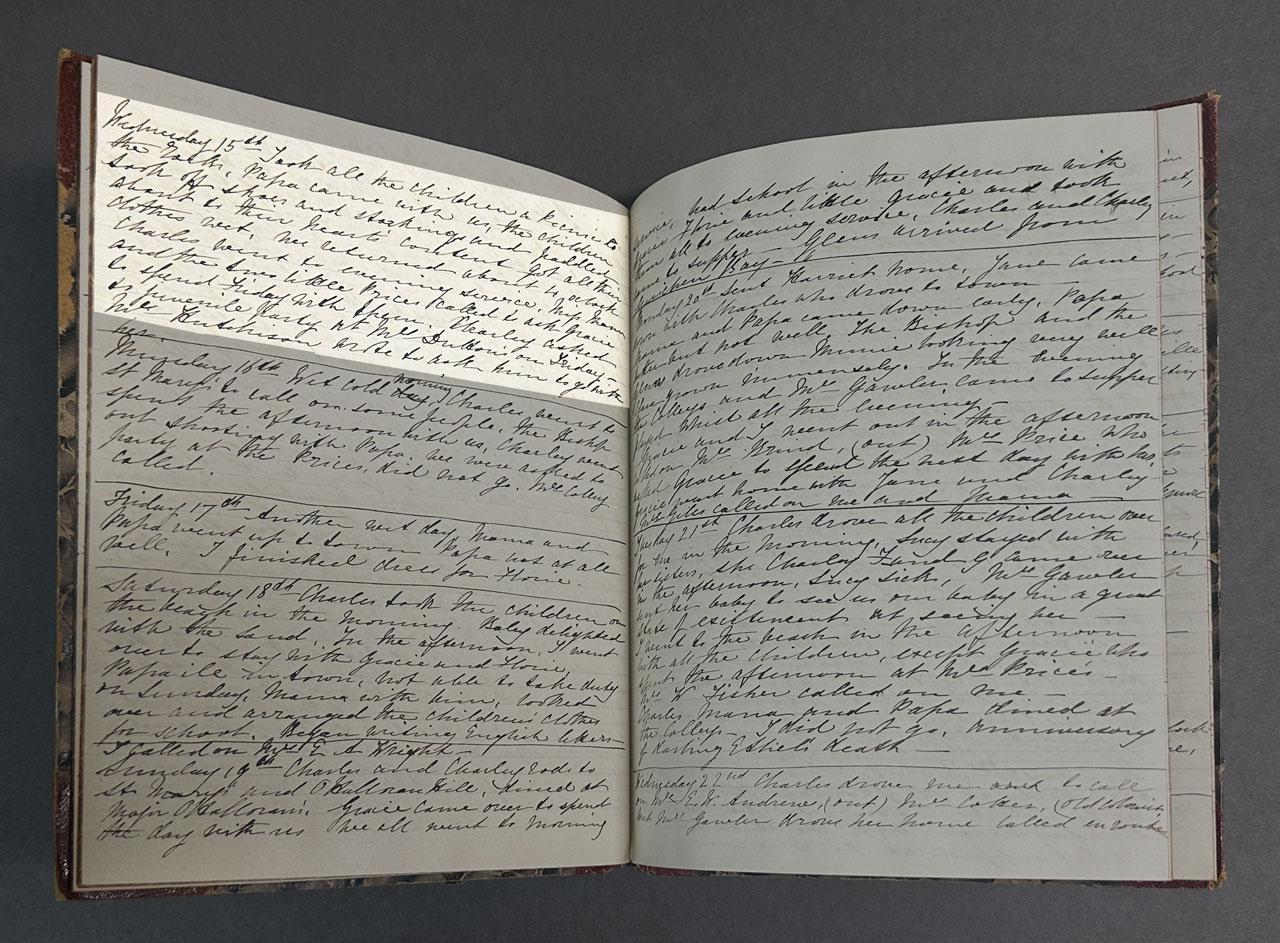 Wednesday 15th Took all the children a picnic to
the rocks, Papa came with us, the children
took off shoes and stockings and paddled
about to their hearts content got all their
clothes wet. We returned about 4 oclock
Charles went to evening service. Mrs Mann
and the two little Prices called to ask Gracie
to spend Friday with them. Charley asked
to juvenile party at Mrs Duttons on Friday,
Mrs Hutchison wrote to ask him to go with
her
Thursday 16th Wet cold day, morning Charles went to
St Marys to call on some people, the Bishop
spent the afternoon with us, Charley went
out shooting with Papa. We were asked to
party at the Prices, did not go. Mrs Colley
called.
Friday 17th Another wet day, Mama and
Papa went up to town Papa not at all
well. I finished dress for Florie.
Saturday 18th Charles took the children on
the beach in the morning. Baby delighted
with the sand. In the afternoon, I went
over to stay with Gracie and Florie,
Papa ill in town, not able to take duty
on Sunday, Mama with him, looked
over and arranged the childrens clothes
for school. Began writing English letters
I called on Mrs E. A. Wright
Sunday 19th Charles and Charley rode to
St Marys and O'Halloran Hill, dined at
Major O'Hallorans. Gracie came over to spend
the day with us We all went to morning
service, had school in the afternoon with
Florie and little Gracie and took
them all to evening service, Charles and Charley
home to supper
Bay – Glens arrived from
Monday 20th Sent Harriet home, Jane came
with Charles who drove to town
Mama and Papa came down early, Papa
but not well. The Bishop and the
Glens drove down Minnie looking very well
have grown immensely. In the evening
the Colleys and Mrs Gawler came to supper
played Whist all the evening
and I went out in the afternoon
called on Mrs (out) Mrs Price who
asked Gracie to spend the next day with her,
Gracie went home with Jane and Charley
Mrs Giles called on me and Mama
Tuesday 21st Charles drove all the children over
to me in the morning, Lucy stayed with
her sisters, she Charley F and G came over
in the afternoon, Lucy sick, Mrs Gawler
sent her baby to see us our baby in a great
state of exsitement at seeing her –
I went to the beach in the afternoon
with all the children, except Gracie who
spent the afternoon at Mrs Prices –
Mrs Fisher called on me –
Charles Mama and Papa dined at
the Colleys – I did not go, anniversary
of darling Ethels death –
Wednesday 22nd Charles drove me out to call
on Mrs E. W. Andrews, (out) Mrs (old Colonist)
met Mrs Gawler drove her home called en route